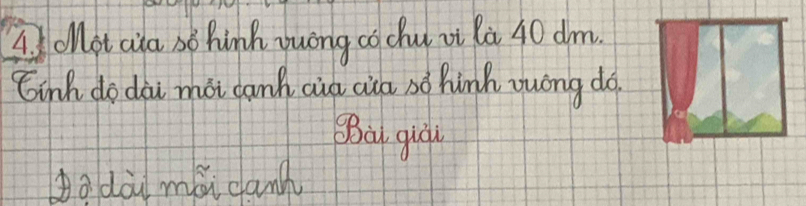 4. Một cửa sổ hình vuông có chu vi là 40 dm.
Tính độ dài mỗi cạnh của cửa sổ hình vuông đó.
Bài giải
Độ dài mỗi cạnh